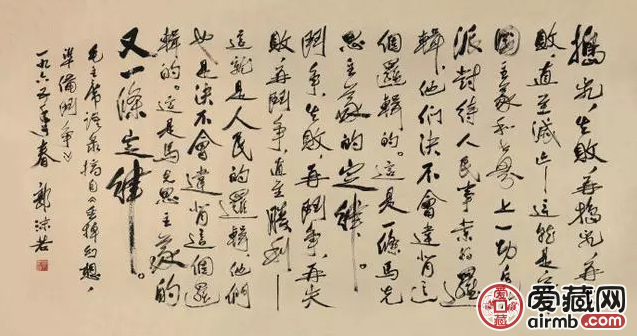 搗乱,失敗,再搗乱,再
敗直至滅亡——這就是
國主義和世界上一切反
派對待人民事業的邏
輯,他們決不會違背這
個邏輯的。這是一條馬克
思主義的定律。
鬥爭,失敗,再鬥爭,再失
敗,再鬥爭,直至勝利——
這就是人民的邏輯,他們
也是決不會違背這個邏
輯的。這是馬克思主義的
又一條定律。
毛主席語录摘自《丟掉幻想,
準備鬥争》
一九六五年春 郭沫若
爱藏网
airmb.com